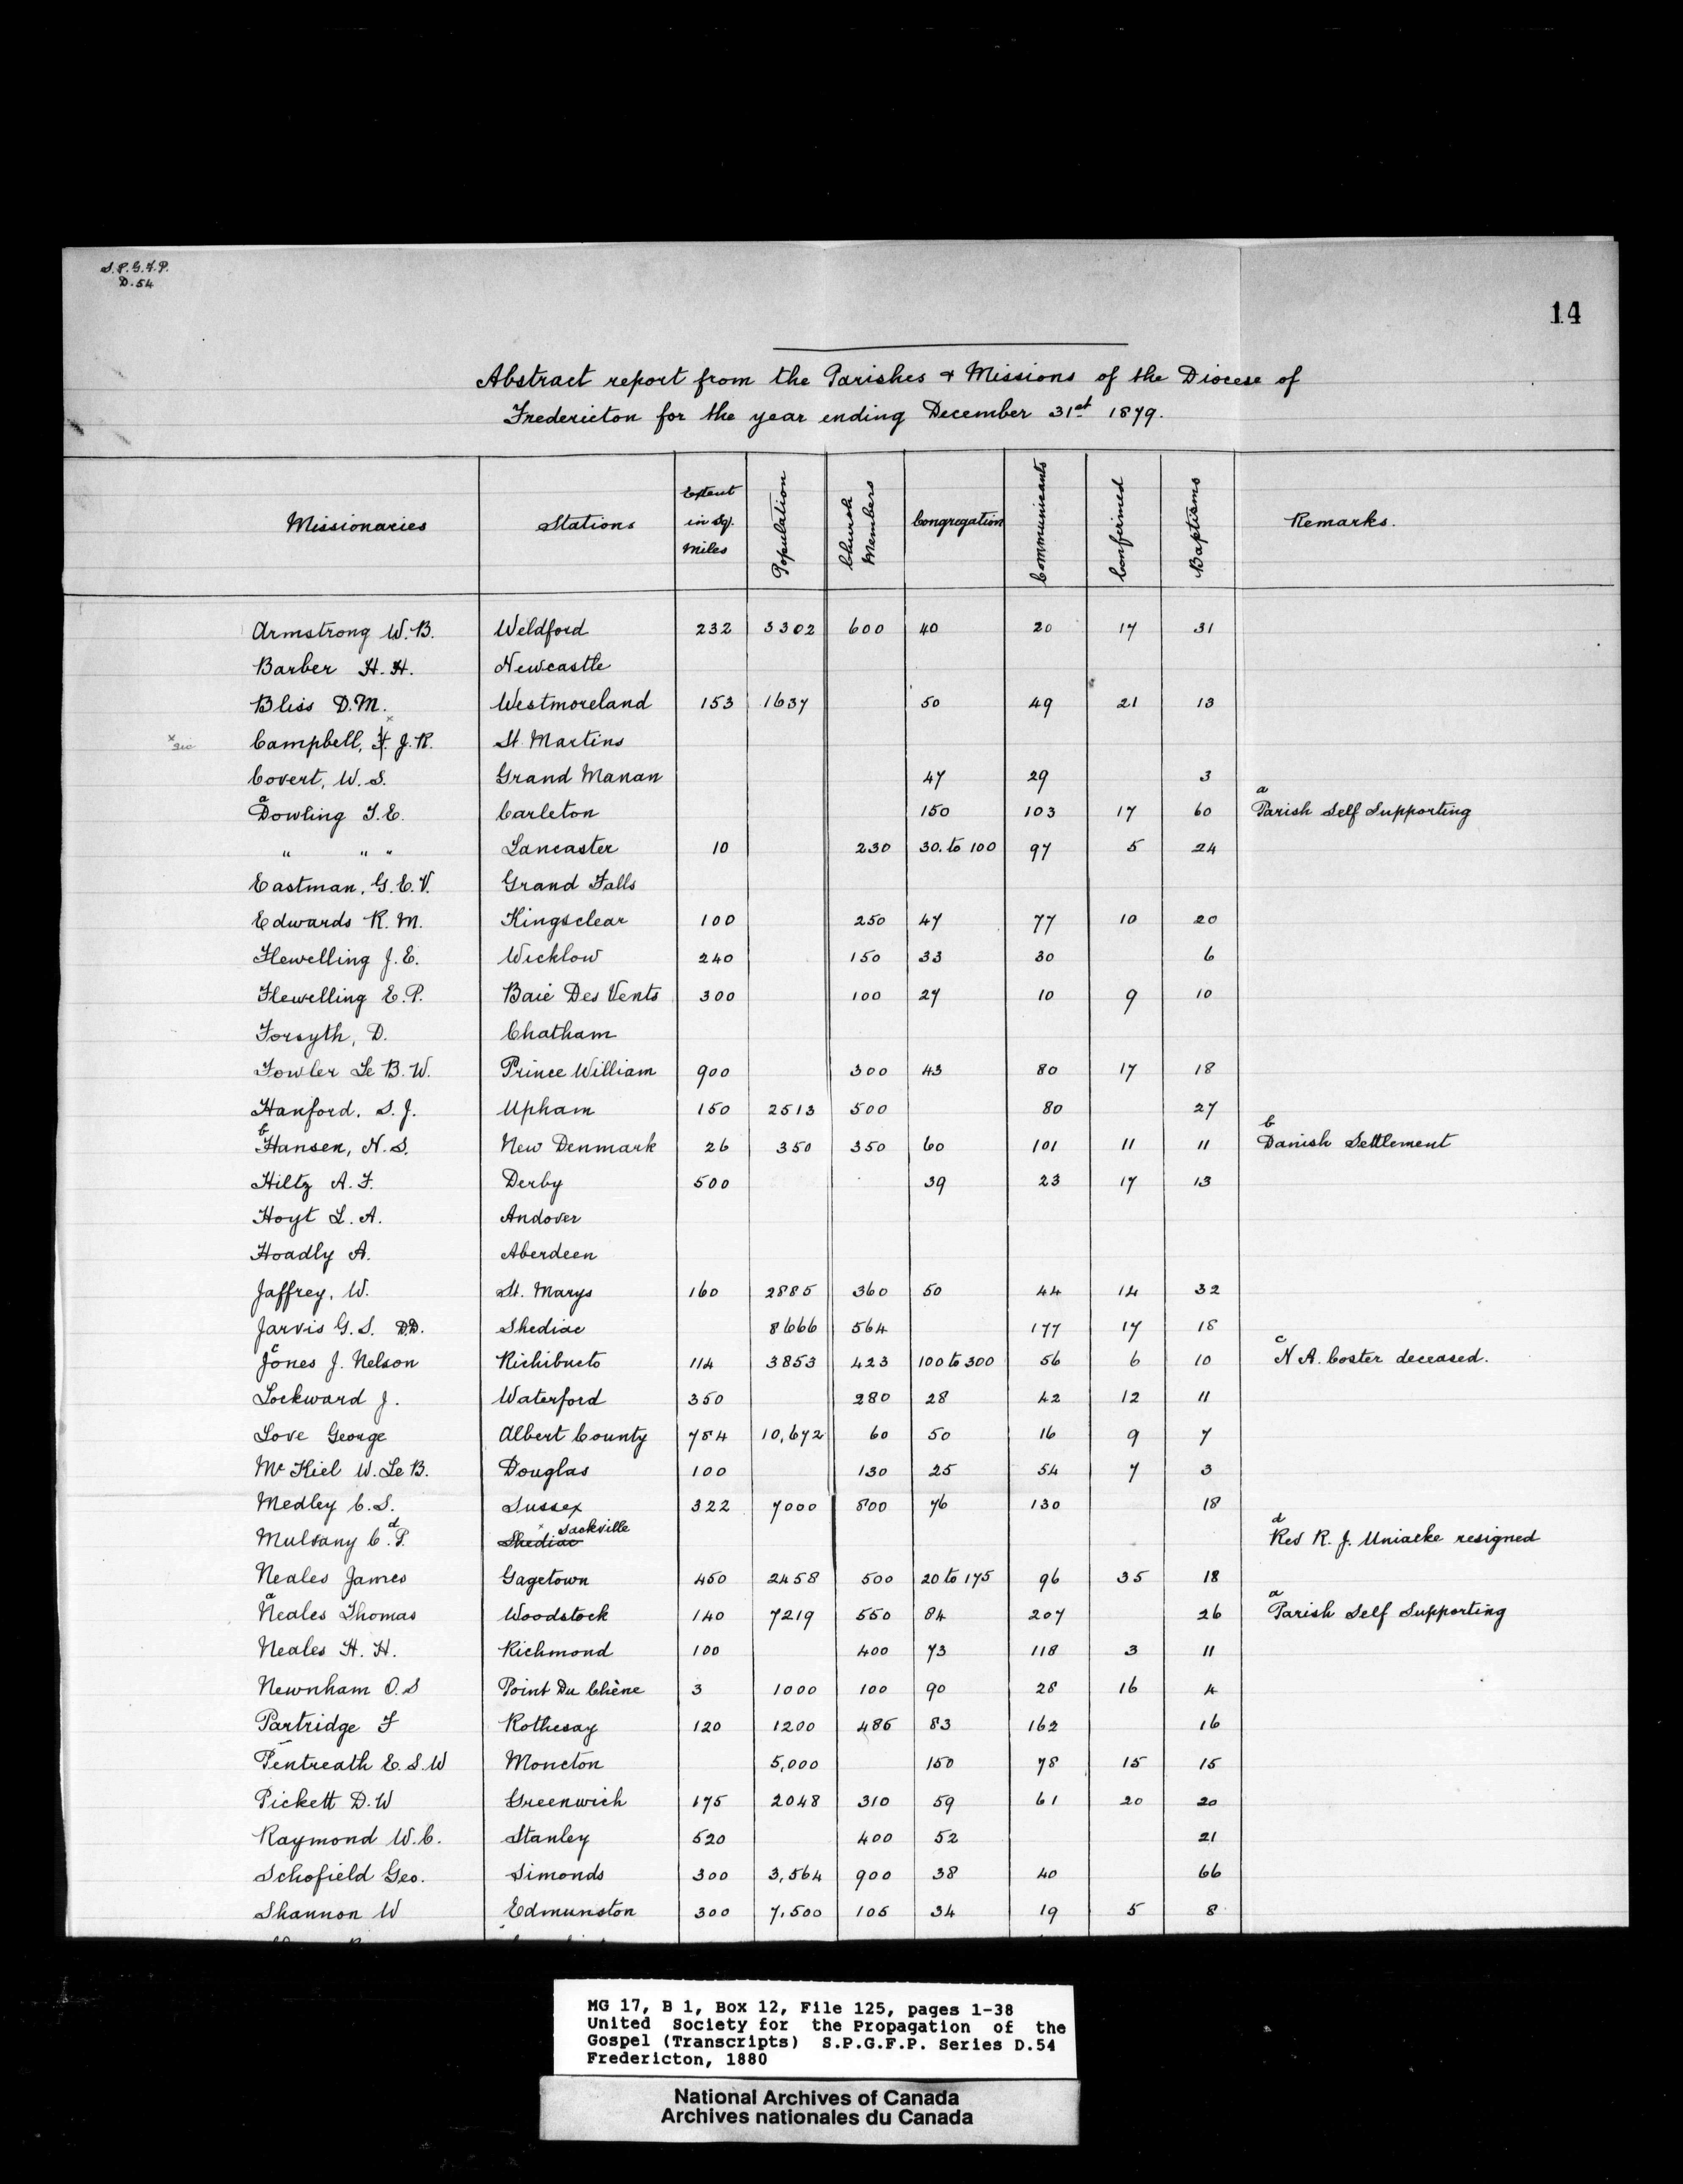 S.P.G.F.P.
D.54
14
Abstract report from the Parishes & Missions of the Diocese of
Fredericton for the year ending December 31st 1879.
Missionaries Stations Extent in Sq. Miles Population Church Members Congregation Communicants Confirmed Baptisms Remarks.
Armstrong W.B. Weldford 232 3302 600 40 20 17 31
Barber H.H. Newcastle
Bliss D.M. Westmoreland 153 1637 50 49 21 13
x sic Campbell, F. x J.R. St. Martins
Covert, W.S. Grand Manan 47 29 3
a Dowling T.E. Carleton 150 103 17 60 a Parish Self Supporting
" " " Lancaster 10 230 30. to 100 97 5 24
Eastman, G.E.V. Grand Falls
Edwards R.M. Kingsclear 100 250 47 77 10 20
Flewelling J.E. Wicklow 240 150 33 30 6
Flewelling E.P. Baie Des Vents 300 100 27 10 9 10
Forsyth, D. Chatham
Fowler Le B.W. Prince William 900 300 43 80 17 18
Hanford, S.J. Upham 150 2513 500 80 27
b Hansen, N.S. New Denmark 26 350 350 60 101 11 11 b Danish Settlement
Hiltz A.F. Derby 500 39 23 17 13
Hoyt L.A. Andover
Hoadly A. Aberdeen
Jaffrey, W. St. Marys 160 2885 360 50 44 14 32
Jarvis G.S. D.D. Shediac 8666 564 177 17 18
c Jones J. Nelson Richibucto 114 3853 423 100 to 300 56 6 10 c N A. Coster deceased.
Lockward J. Waterford 350 280 28 42 12 11
Love George Albert County 784 10,672 60 50 16 9 7
Mc Kiel W. Le B. Douglas 100 130 25 54 7 3
Medley C.S. Sussex 322 7000 800 76 130 18
Mulvany C. d P. Shediac x Sackville d Rev R. J. Uniacke resigned
Neales James Gagetown 450 2458 500 20 to 175 96 35 18
a Neales Thomas Woodstock 140 7219 550 84 207 26 a Parish Self Supporting
Neales H. H. Richmond 100 400 73 118 3 11
Newnham O.S Point Du Chêne 3 1000 100 90 28 16 4
Partridge F Rothesay 120 1200 485 83 162 16
Pentreath E.S.W Moncton 5,000 150 78 15 15
Pickett D.W Greenwich 175 2048 310 59 61 20 20
Raymond W.C. Stanley 520 400 52 21
Schofield Geo. Simonds 300 3,564 900 38 40 66
Shannon W Edmunston 300 7,500 105 34 19 5 8
MG 17, B 1, Box 12, File 125, pages 1-38
United Society for the Propagation of the
Gospel (Transcripts) S.P.G.F.P. Series D.54
Fredericton, 1880
National Archives of Canada
Archives nationales du Canada